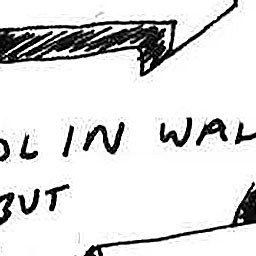 OL IN WAL
BUT